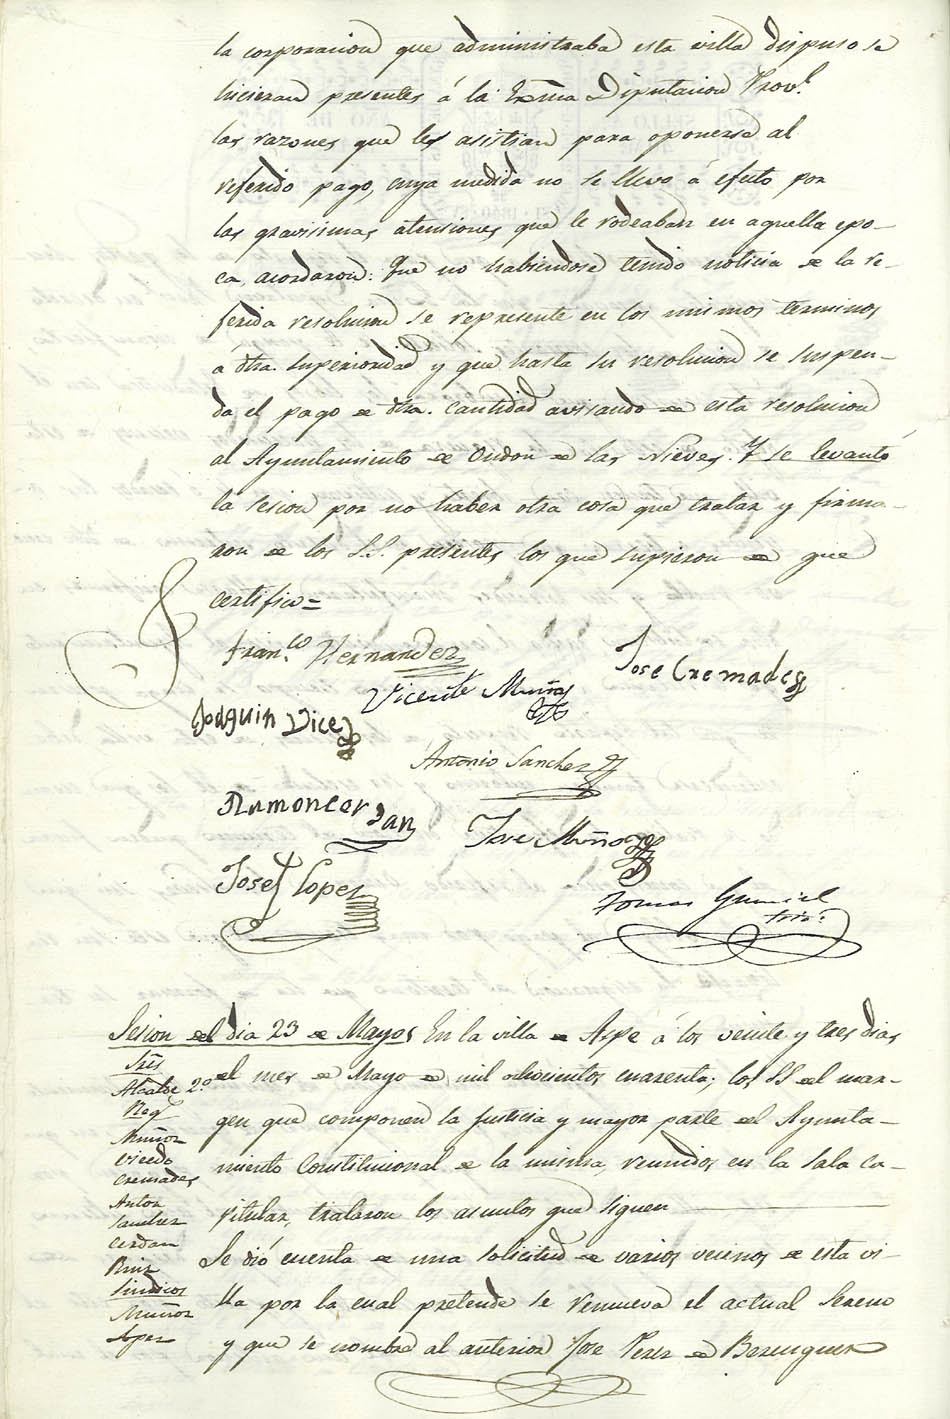 la corporacion que administraba esta villa dispuso se
hicieran presentes á la Exma Diputacion Provl.
las razones que les asistian para oponerse al
referido pago, cuya medida no se llevo á efecto por
las gravisimas atensiones que le rodeaban en aquella epo-
ca, acordaron: Que no habiendose tenido noticia de la re-
ferida resolucion se represente en los mismos terminos
á dha. superioridad y que hasta su resolucion se suspen-
da el pago de dha. cantidad avisando de esta resolucion
al Ayuntamiento de Ondon de las Nieves. Y se levantó
la sesion por no haber otra cosa que tratar y firma-
ron de los S.S. presentes los que supieron de que
certifico=
Franco. Hernandez
Jose Cremades
Vicente Muñoz
Joaquin Vice
Antonio Sanchez
Ramon cer dan
Jose Muñoz
Josef Lopez
Tomas Gumiel
srio.
Sesion del dia 23 de Mayo
En la villa de Aspe á los veinte y tres dias
del mes de Mayo de mil ochocientos cuarenta; los SS del mar-
gen que componen la Justicia y mayor parte del Ayunta-
miento Constitucional de la misma, reunidos en la sala ca-
pitular, trataron los asuntos que siguen
Se dió cuenta de una solicitud de varios vecinos de esta vi-
lla por la cual pretende se remueva el actual Sereno
y que se nombre al anterior Jose Perez de Berenguer
Sres
Alcalde 2.o
Reg
Muñoz
Vicedo
Cremades
Anton
Sanchez
Cerdan
Ruiz
Sindicos
Muñoz
Lopez